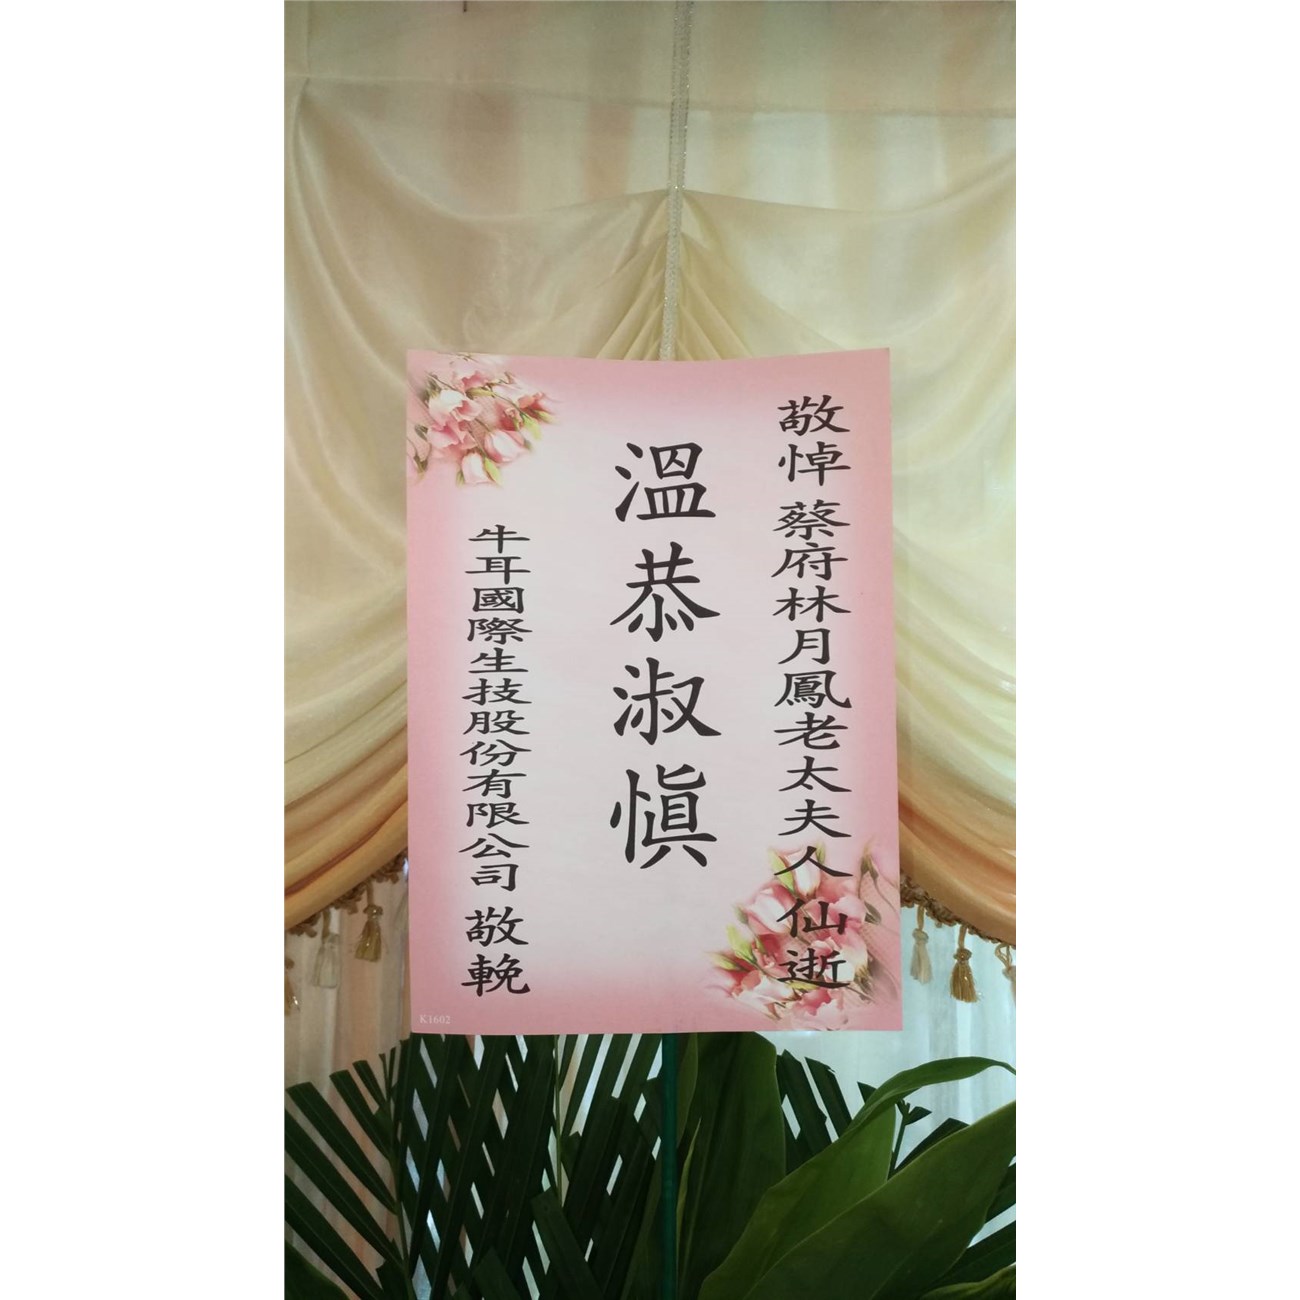 敬悼 蔡府林月鳳老太夫人 仙逝
溫恭淑慎
牛耳國際生技股份有限公司 敬輓
K1602